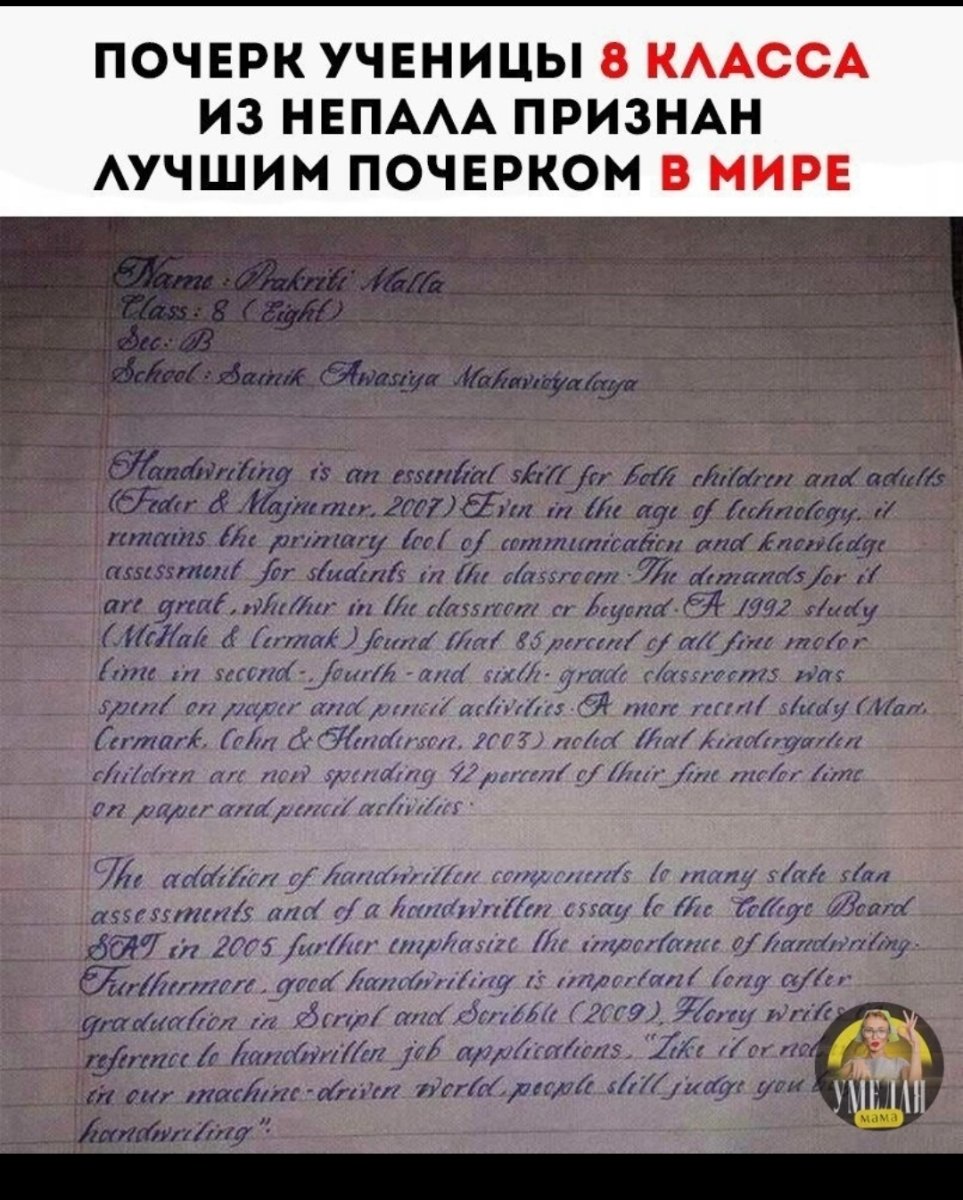 ПОЧЕРК УЧЕНИЦЫ 8 КЛАССА
ИЗ НЕПАЛА ПРИЗНАН
ЛУЧШИМ ПОЧЕРКОМ В МИРЕ
Name : Prakriti Malla
Class : 8 ( Eight )
Sec : B
School : Sainik Awasiya Mahavidyalaya
Handwriting is an essential skill for both children and adults
(Feder & Majnemer, 2007) Even in the age of technology, it
remains the primary tool of communication and knowledge
assessment for students in the classroom. The demands for it
are great, whether in the classroom or beyond. A 1992 study
(McHale & Cermak) found that 85 percent of all fine motor
time in second-, fourth-and sixth-grade classrooms was
spent on paper and pencil activities. A more recent study (Marr,
Cermark, Cohn & Henderson, 2003) noted that kindergarten
children are now spending 42 percent of their fine motor time
on paper and pencil activities.
The addition of handwritten components to many state stan
assessments and of a handwritten essay to the College Board
SAT in 2005 further emphasize the importance of handwriting.
Furthermore, good handwriting is important long after
graduation in Script and Scribble (2009), Florey writes
reference to handwritten job applications, "Like it or not
in our machine-driven world, people still judge you
handwriting".
УМЕЛАЯ
мама